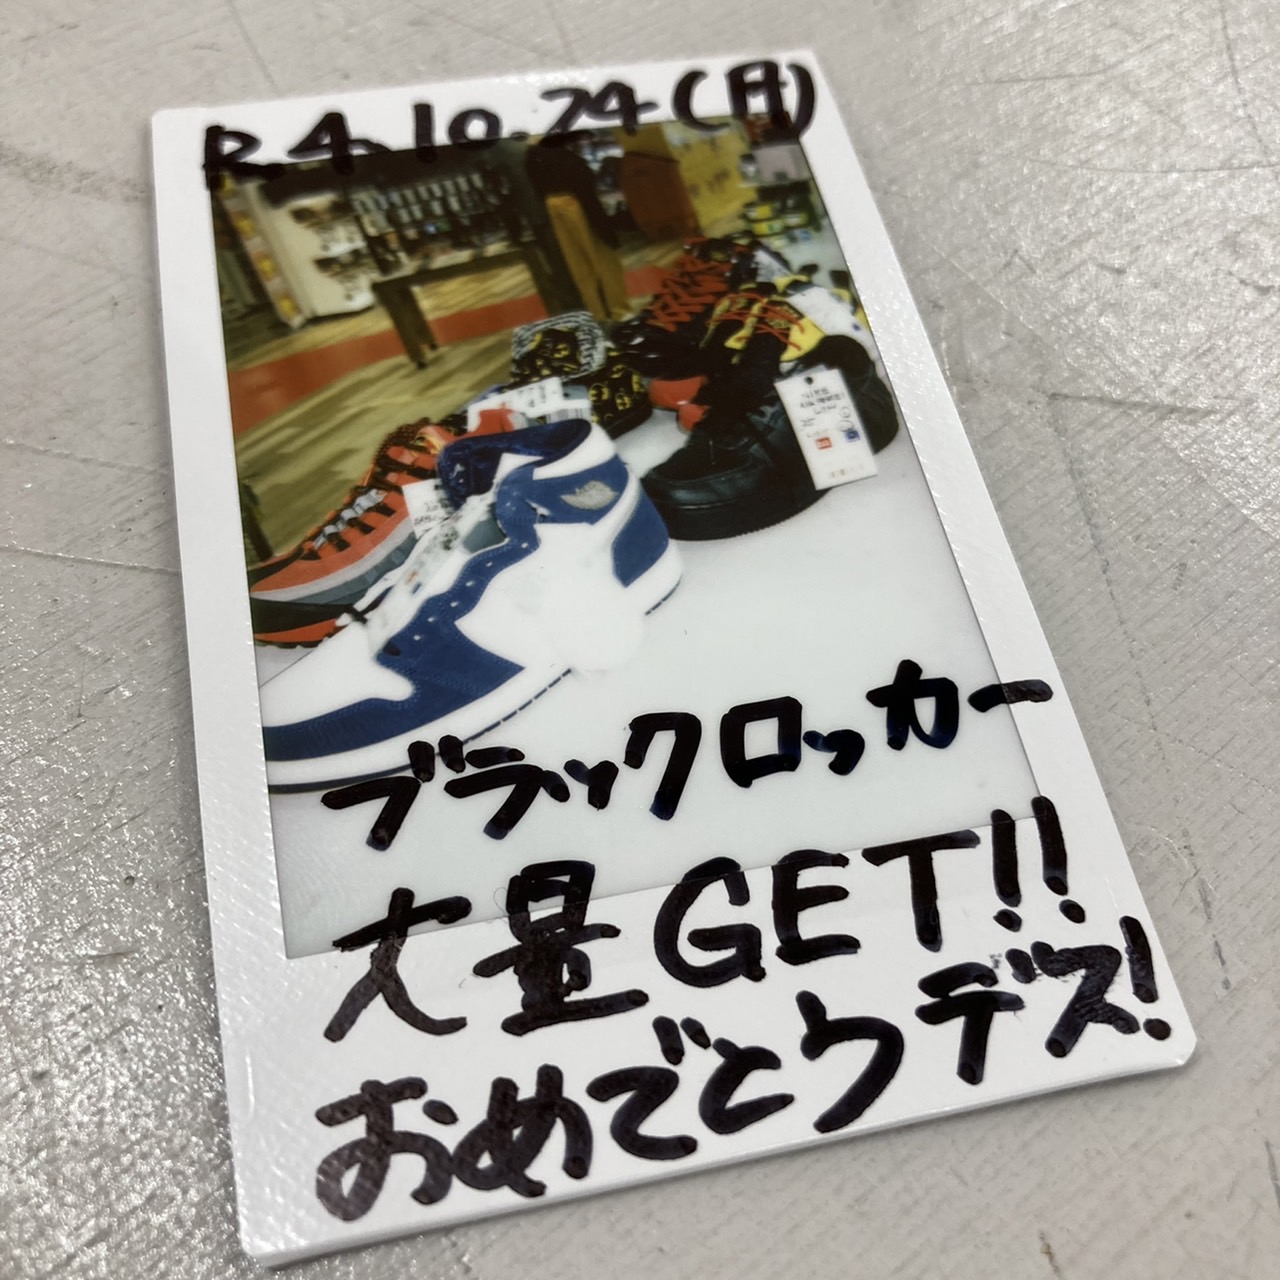 R.4.10.24(月)
ブラックロッカー
大量GET!!
おめでとうデス!